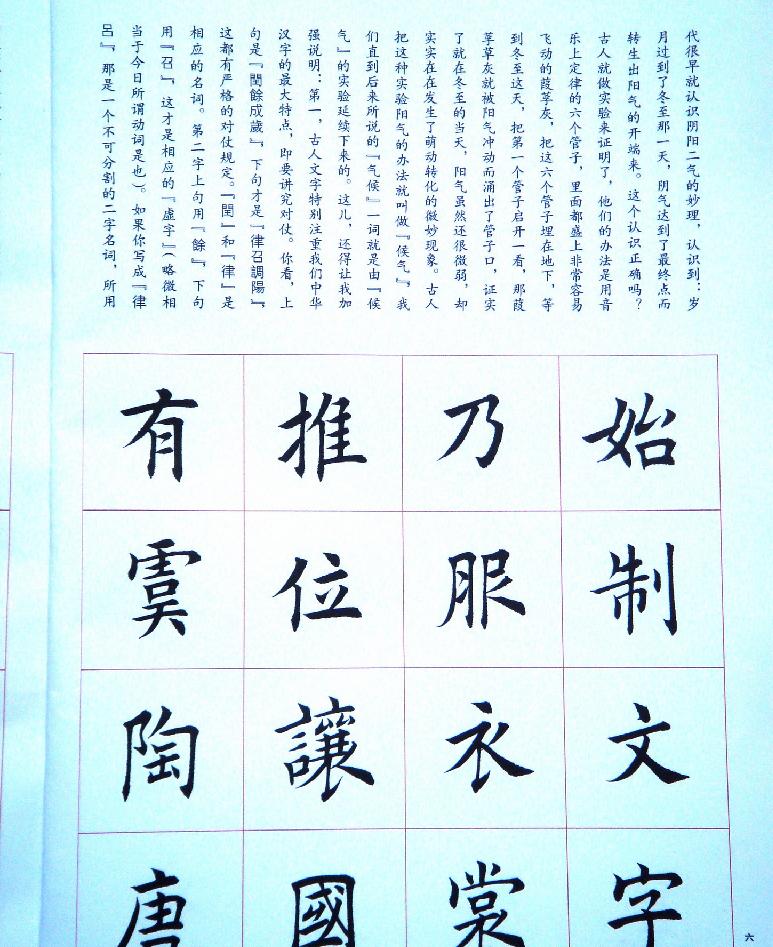 代很早就认识阴阳二气的妙理，认识到：岁
月过到了冬至那一天，阴气达到了最终点而
转生出阳气的开端来。这个认识正确吗？
古人就做实验来证明了，他们的办法是用音
乐上定律的六个管子，里面都盛上非常容易
飞动的葭莩灰，把这六个管子埋在地下，等
到冬至这天，把第一个管子启开一看，那葭
莩草灰就被阳气冲动而涌出了管子口，证实
了就在冬至的当天，阳气虽然还很微弱，却
实实在在发生了萌动转化的微妙现象。古人
把这种实验阳气的办法就叫做『候气』。我
们直到后来所说的『气候』一词就是由『候
气』的实验延续下来的。这儿，还得让我加
强说明：第一，古人文字特别注重我们中华
汉字的最大特点，即要讲究对仗。你看，上
句是『閏餘成歲』，下句才是『律召調陽』，
这都有严格的对仗规定。『閏』和『律』是
相应的名词。第二字上句用『餘』，下句
用『召』，这才是相应的『虚字』（略微相
当于今日所谓动词是也）。如果你写成『律
呂』，那是一个不可分割的二字名词，所用
始制文字
乃服衣裳
推位讓國
有虞陶唐
六